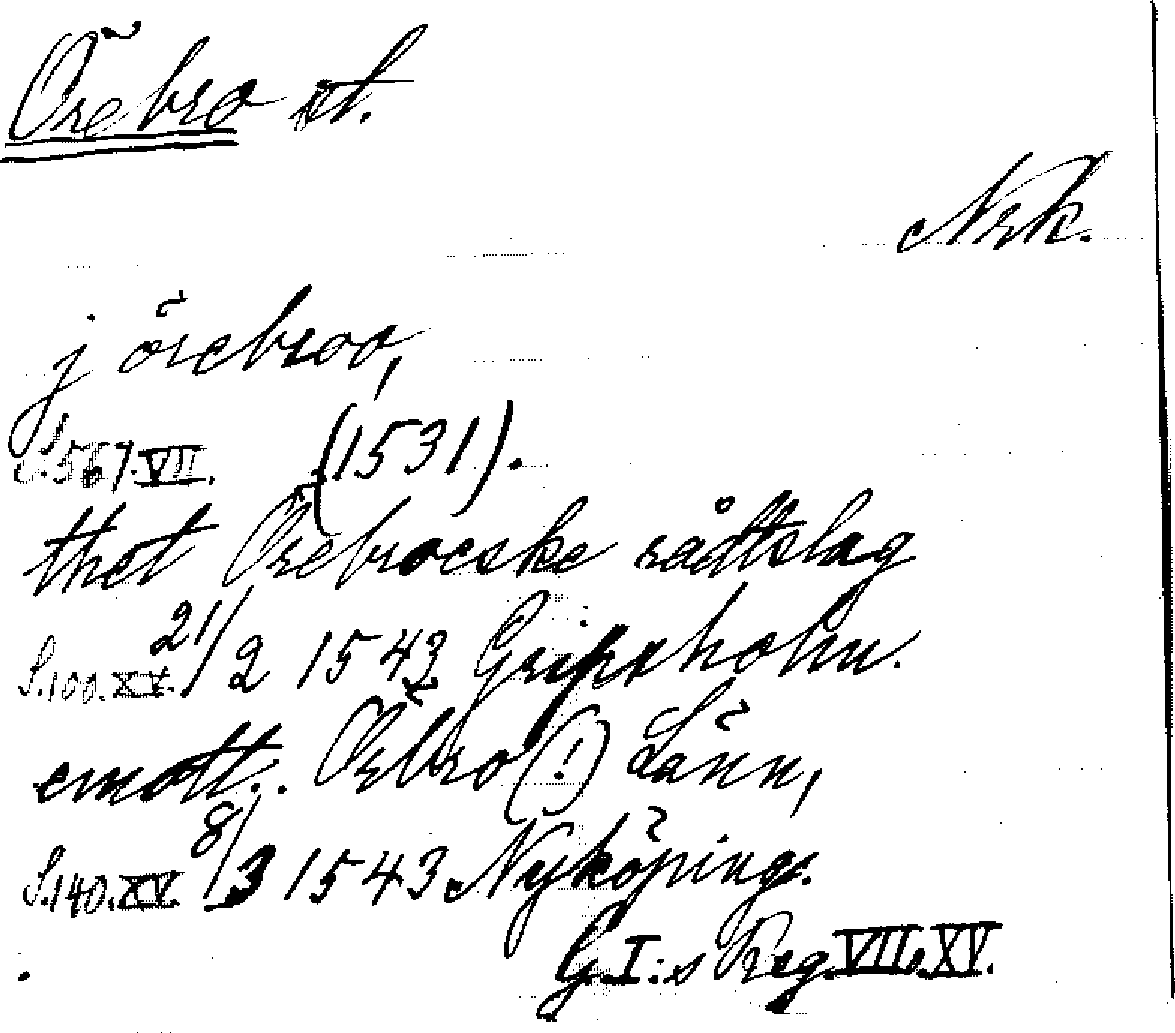 Örebro st.
Nrk.
j örebroo,
S. 567. VII. (1531).
thet Örebroeske rådtslag
S. 100. XV. 21/2 1543 Gripsholm.
emott.. Örbro (!) Länn,
S. 140. XV. 8/3 1543 Nyköping.
G. I:s Reg. VII. XV.